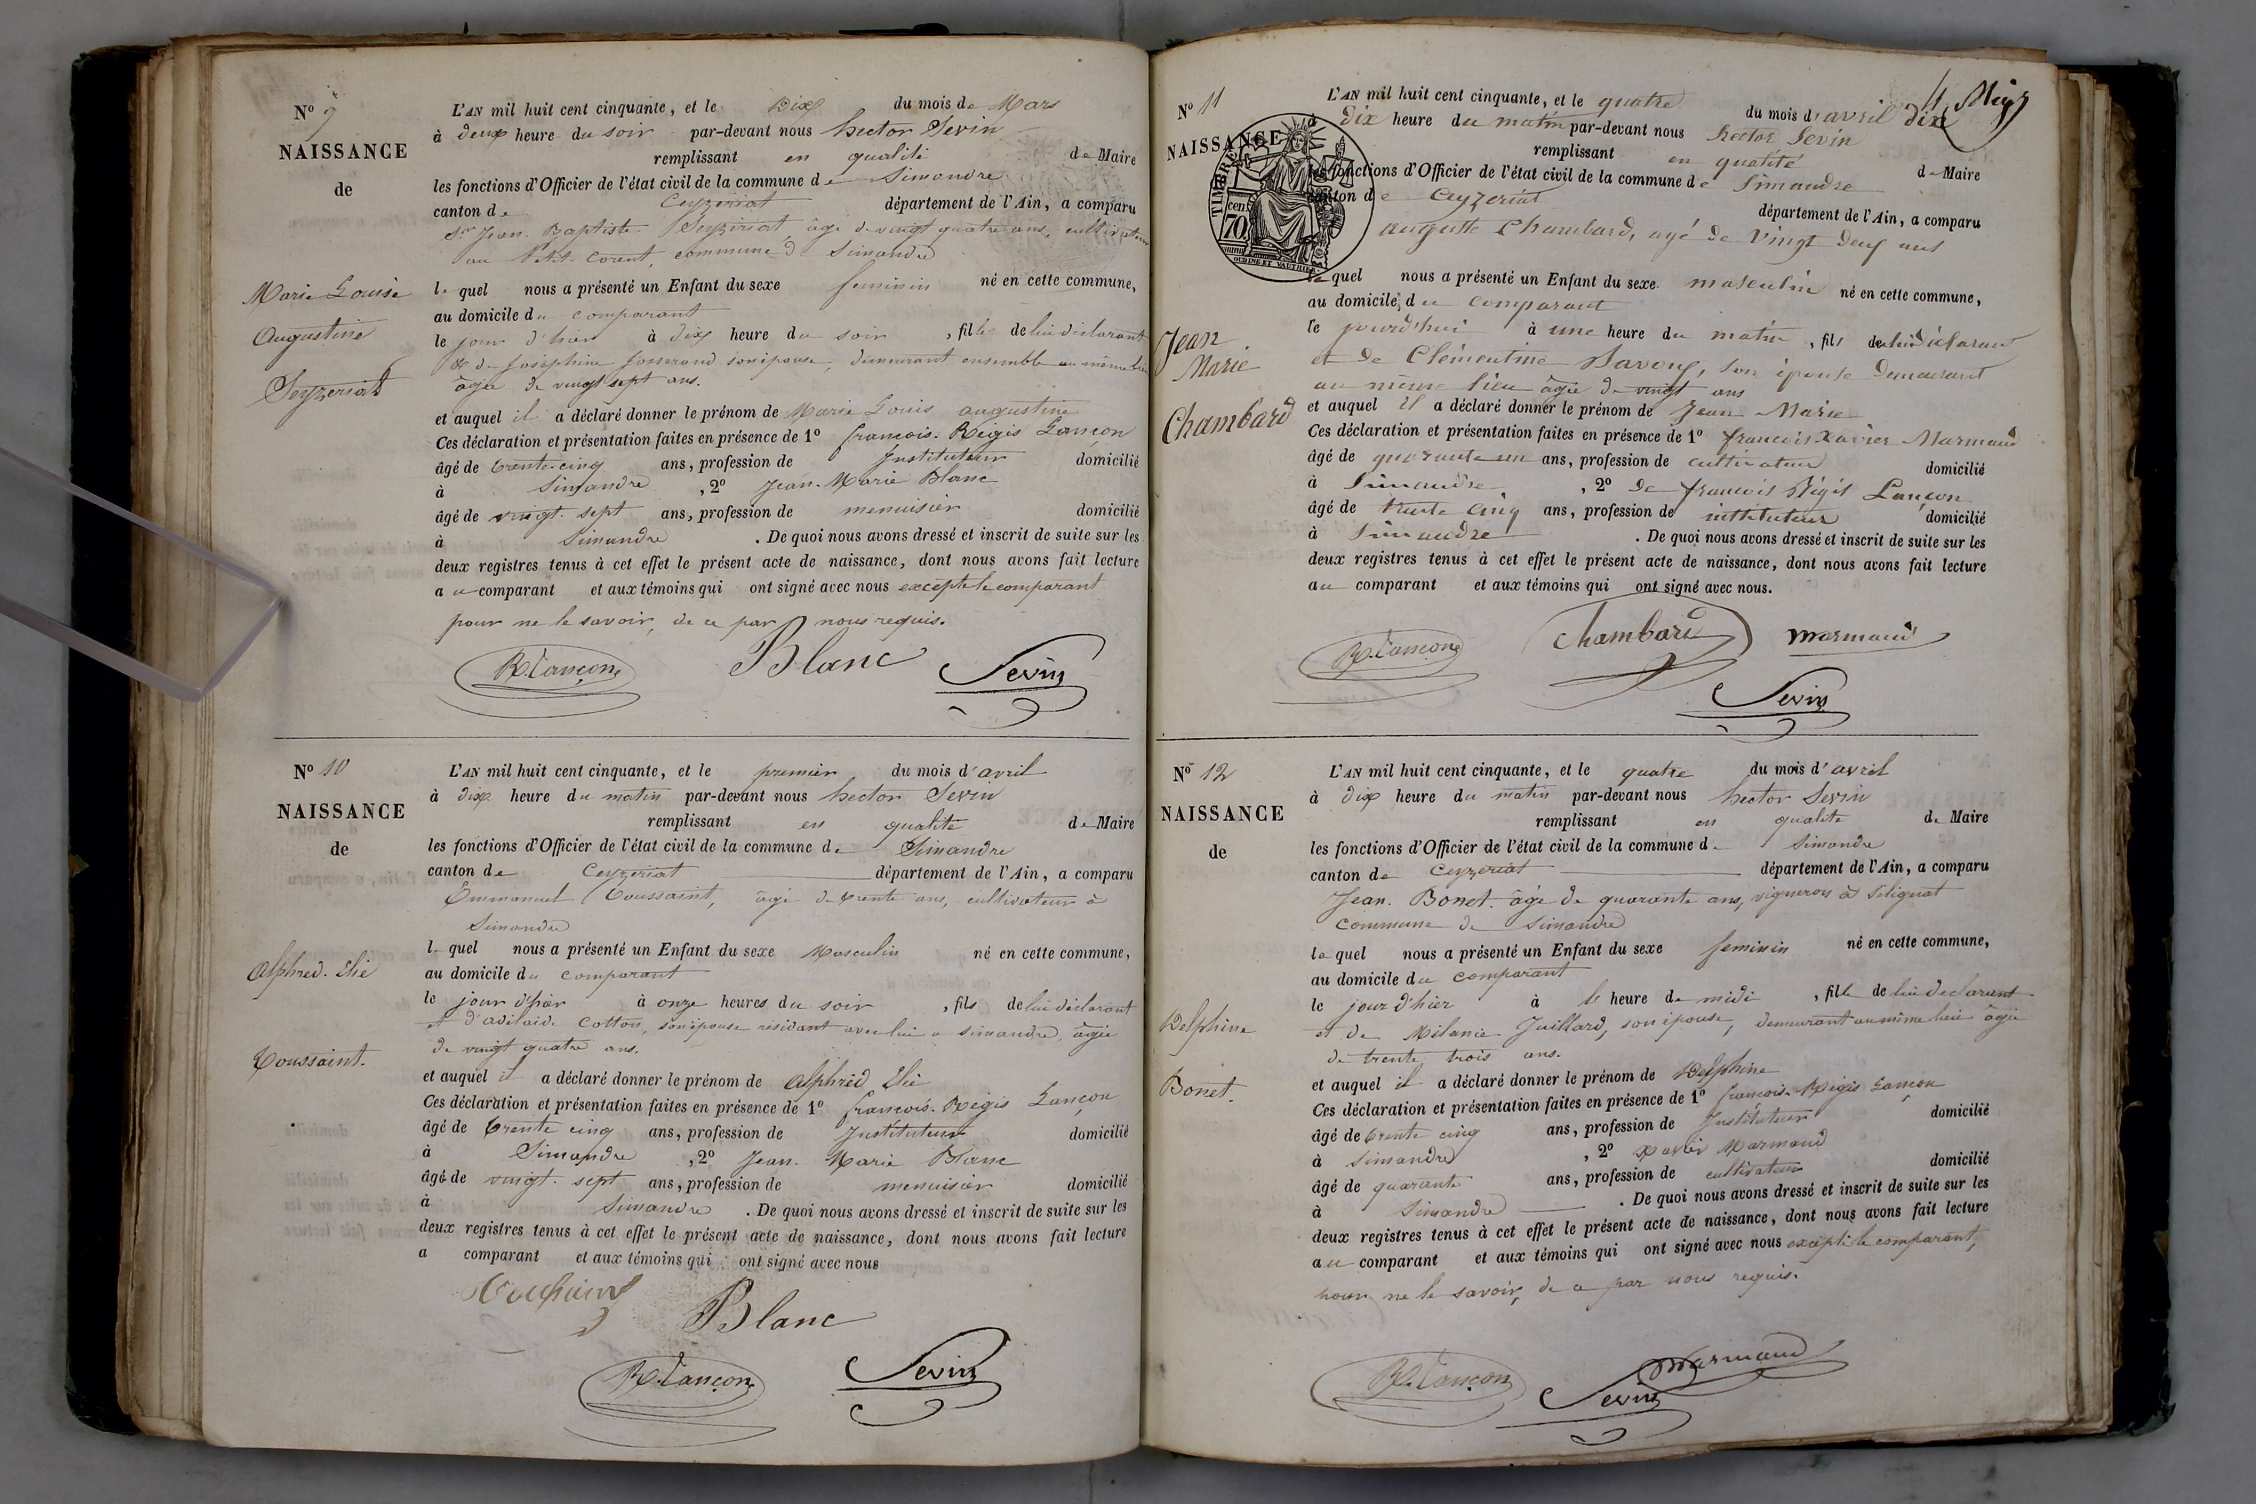 N° 9
NAISSANCE
de
Marie Louise
Augustine
Seyzeriat
L'AN mil huit cent cinquante, et le Dix du mois de Mars
à deux heure du soir par-devant nous hector Sevin
remplissant en qualité de Maire
les fonctions d'Officier de l'état civil de la commune de Simandre
canton de Ceyzeriat département de l'Ain, a comparu
Sr Jean Baptiste Seyzeriat, âgé de vingt quatre ans, cultivateur
au Petit Corent, commune de Simandre
le quel nous a présenté un Enfant du sexe feminin né en cette commune,
au domicile du comparant
le jour d'hier à dix heure du soir, fille de lui déclarant
& de Joséphine Josserand son épouse, demeurant ensemble au même lieu
âgée de vingt sept ans.
et auquel il a déclaré donner le prénom de Marie Louis augustine
Ces déclaration et présentation faites en présence de 1° françois-Régis Lançon
âgé de trente-cinq ans, profession de Instituteur domicilié
à Simandre, 2° Jean-Marie Blanc
âgé de vingt-sept ans, profession de menuisier domicilié
à Simandre. De quoi nous avons dressé et inscrit de suite sur les
deux registres tenus à cet effet le présent acte de naissance, dont nous avons fait lecture
au comparant et aux témoins qui ont signé avec nous excepté le comparant
pour ne le savoir, de ce par nous requis.
R. Lançon Blanc Sevin
N° 10
NAISSANCE
de
Alphred. Elie
Toussaint.
L'AN mil huit cent cinquante, et le premier du mois d'avril
à dix heure du matin par-devant nous hector Sevin
remplissant en qualité de Maire
les fonctions d'Officier de l'état civil de la commune de Simandre
canton de Ceyzeriat département de l'Ain, a comparu
Emmanuel Toussaint, âgé de trente ans, cultivateur à
Simandre
le quel nous a présenté un Enfant du sexe Masculin né en cette commune,
au domicile du comparant
le jour d'hier à onze heures du soir, fils de lui déclarant
et d'adélaide Cotton, son épouse résidant avec lui a simandre, âgée
de vingt quatre ans.
et auquel il a déclaré donner le prénom de Alphred Elie
Ces déclaration et présentation faites en présence de 1° françois-Régis Lançon
âgé de trente cinq ans, profession de Instituteur domicilié
à Simandre, 2° Jean-Marie Blanc
âgé de vingt-sept ans, profession de menuisier domicilié
à Simandre. De quoi nous avons dressé et inscrit de suite sur les
deux registres tenus à cet effet le présent acte de naissance, dont nous avons fait lecture
a comparant et aux témoins qui ont signé avec nous
Toussaint Blanc
R. Lançon Sevin
11
dix
N° 11
NAISSANCE
TIMBRE
70 cen
OUDINE ET VAUTHIER
Jean
Marie
Chambard
L'AN mil huit cent cinquante, et le quatre du mois d'avril
à Dix heure du matin par-devant nous hector Sevin
remplissant en qualité de Maire
les fonctions d'Officier de l'état civil de la commune de Simandre
canton de Ceyzeriat département de l'Ain, a comparu
auguste Chambard, agé de vingt deux ans
le quel nous a présenté un Enfant du sexe masculin né en cette commune,
au domicile du comparant
le jourd'hui à une heure du matin, fils de lui déclarant
et de Clémentine Savoug, son épouse demeurant
au même lieu âgée de vingt ans
et auquel il a déclaré donner le prénom de Jean Marie
Ces déclaration et présentation faites en présence de 1° francois Xavier Marmand
âgé de quarante un ans, profession de cultivateur domicilié
à Simandre, 2° de francois Régis Lançon
âgé de trente cinq ans, profession de instituteur domicilié
à Simandre. De quoi nous avons dressé et inscrit de suite sur les
deux registres tenus à cet effet le présent acte de naissance, dont nous avons fait lecture
au comparant et aux témoins qui ont signé avec nous.
R. Lançon Chambard marmand
Sevin
N° 12
NAISSANCE
de
Delphine
Bonet.
L'AN mil huit cent cinquante, et le quatre du mois d'avril
à dix heure du matin par-devant nous hector Sevin
remplissant en qualité de Maire
les fonctions d'Officier de l'état civil de la commune de Simandre
canton de Ceyzeriat département de l'Ain, a comparu
Jean. Bonet. âgé de quarante ans, vigneron à Silignat
commune de Simandre
le quel nous a présenté un Enfant du sexe feminin né en cette commune,
au domicile du comparant
le jour d'hier à le heure de midi, fille de lui declarant
et de Mélanie Juillard, son épouse, demeurant au même lieu âgée
de trente trois ans.
et auquel il a déclaré donner le prénom de Delphine
Ces déclaration et présentation faites en présence de 1° françois-Régis Lançon
âgé de trente cinq ans, profession de Instituteur domicilié
à Simandre, 2° Xavier Marmand
âgé de quarante ans, profession de cultivateur domicilié
à Simandre. De quoi nous avons dressé et inscrit de suite sur les
deux registres tenus à cet effet le présent acte de naissance, dont nous avons fait lecture
au comparant et aux témoins qui ont signé avec nous excepté le comparant,
pour ne le savoir, de ce par nous requis.
R. Lançon Sevin marmand